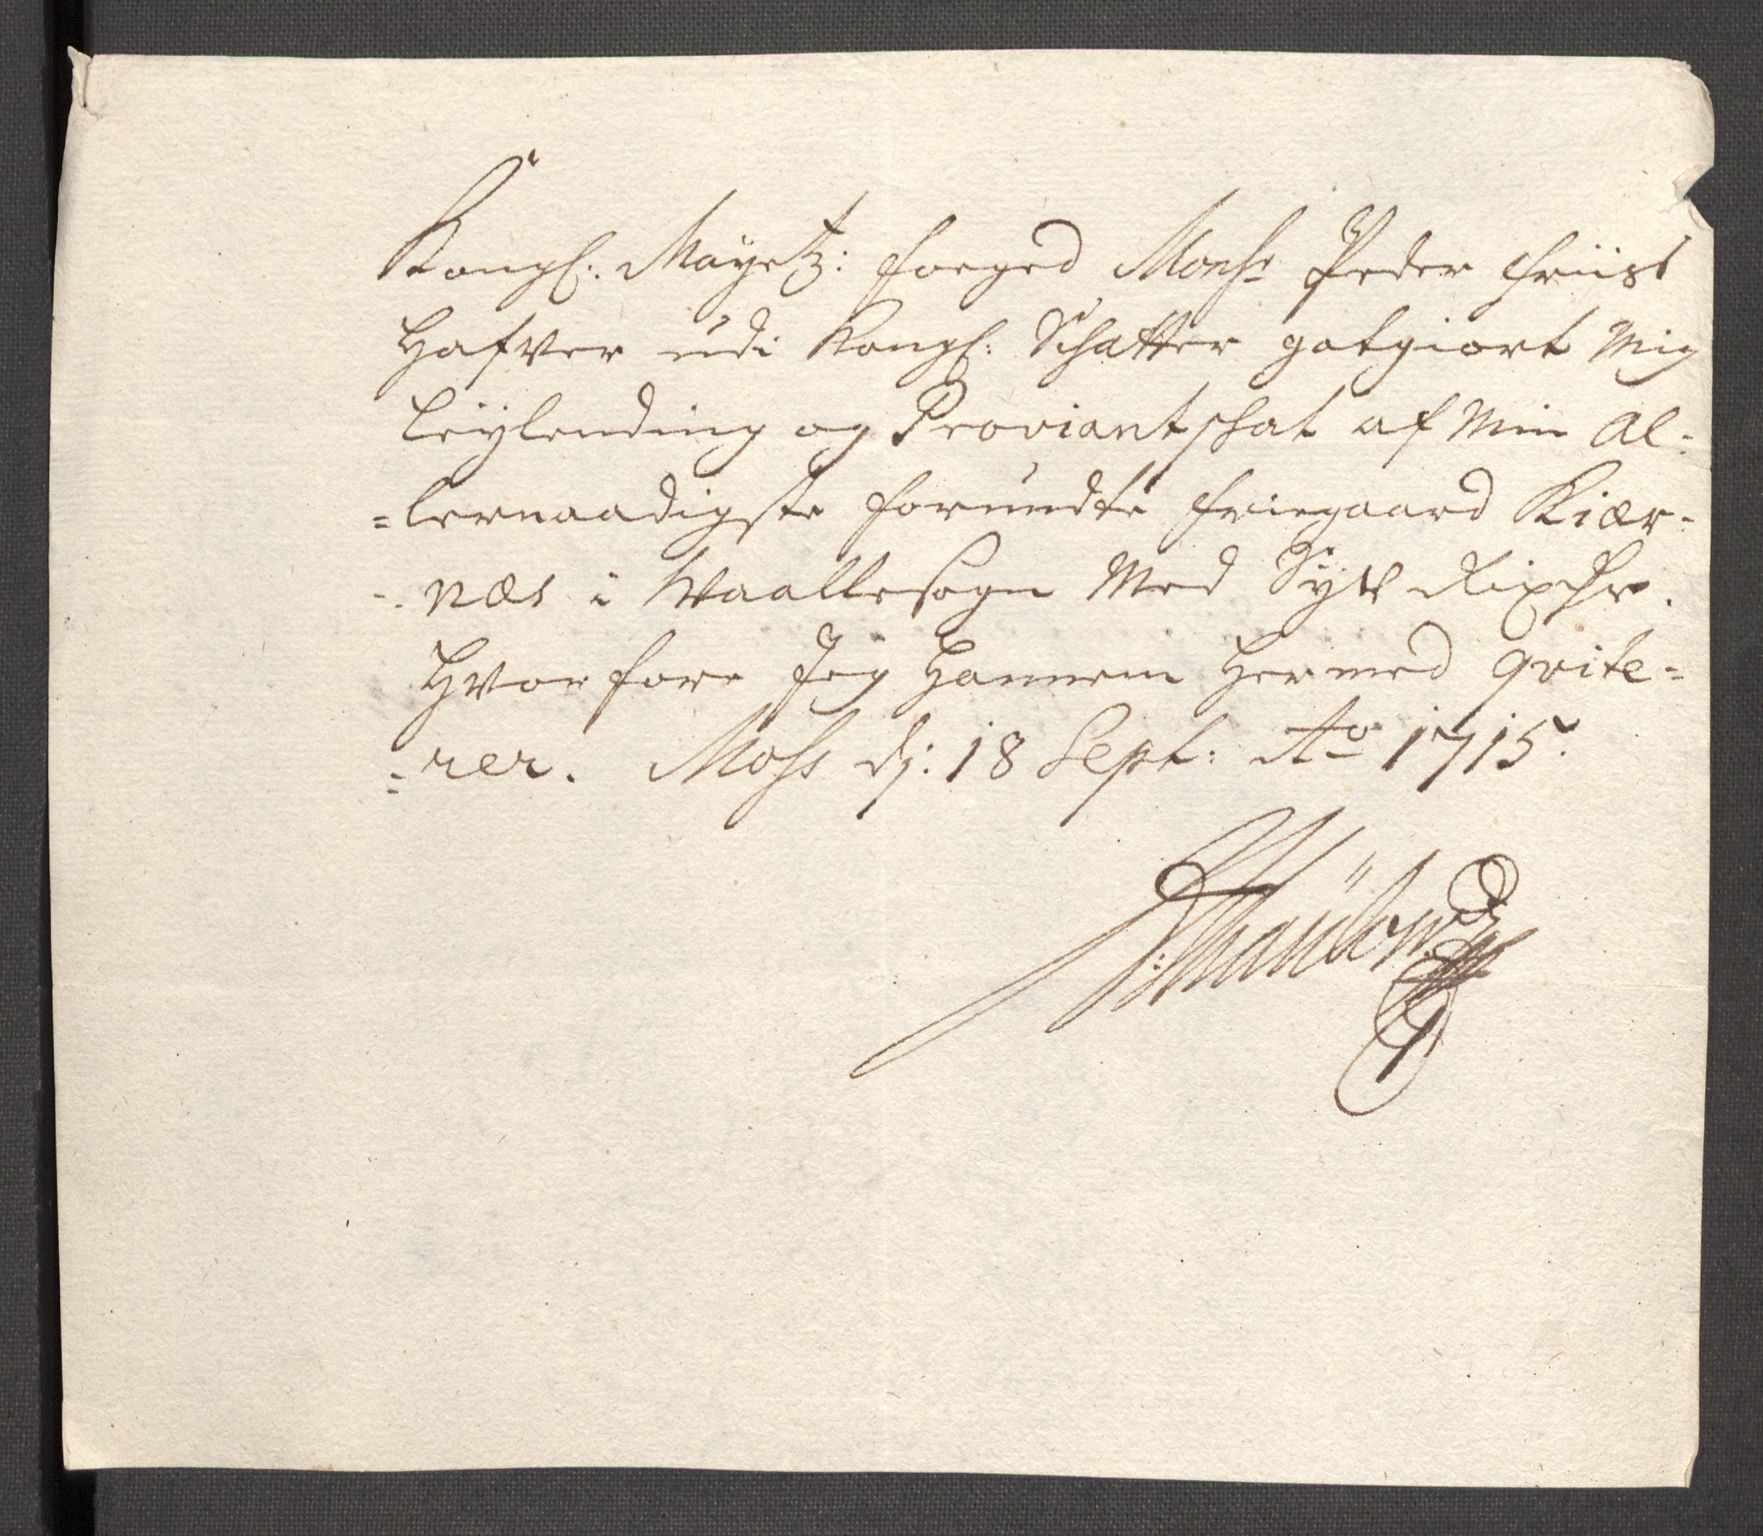 Kongl: Mayetz: Foeged Monsr Peder Friisl
Hafver udi Kongl: Schatter gotgiort Mig
Leylending og Proviantschat af Min Al-
=lernaadigste forundte Friegaard Kiær-
-næs i Waallesogn Med Syv Rixdr.
Hvorfore Jeg Hannem Hermed qvite=
=rer. Moss d: 18 Sept: Ao 1715.